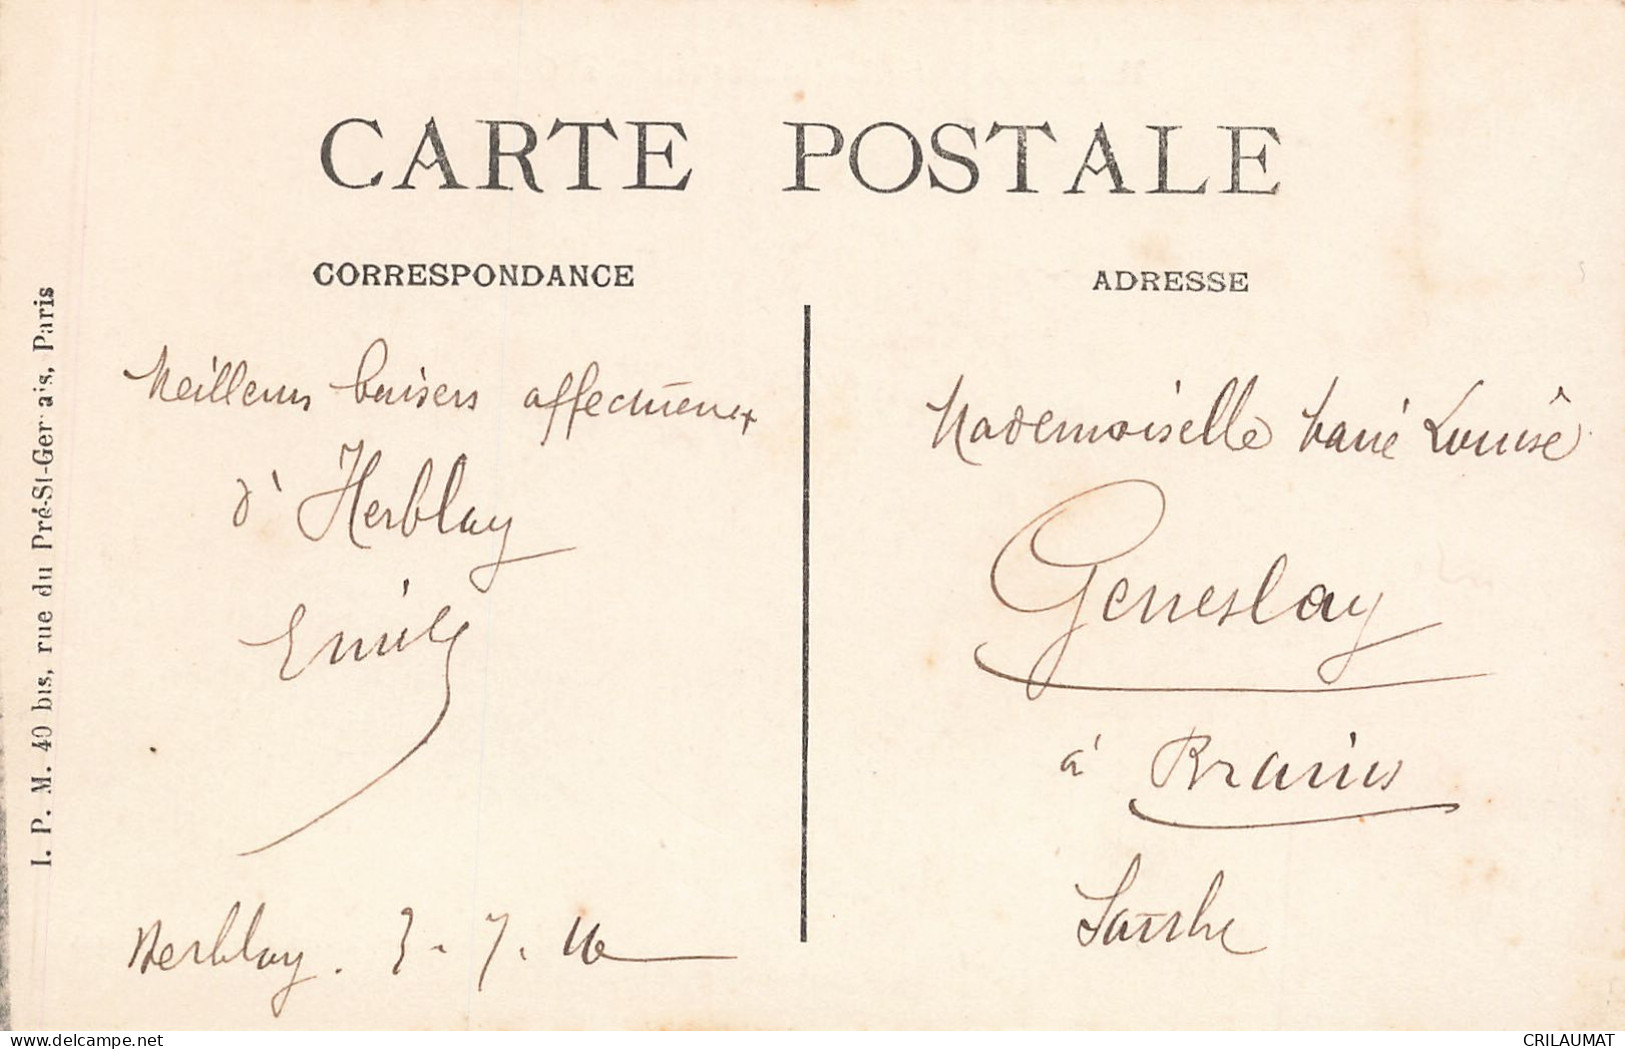 CARTE POSTALE
CORRESPONDANCE
ADRESSE
I. P. M. 40 bis, rue du Pré-St-Gervais, Paris
Meilleurs baisers affectueux
d'Herblay
Emile
Herblay. 3. 7. 16
Mademoiselle Marie Louise
Geneslay
à Brains
Sarthe
delcampe.net
CRILAUMAT